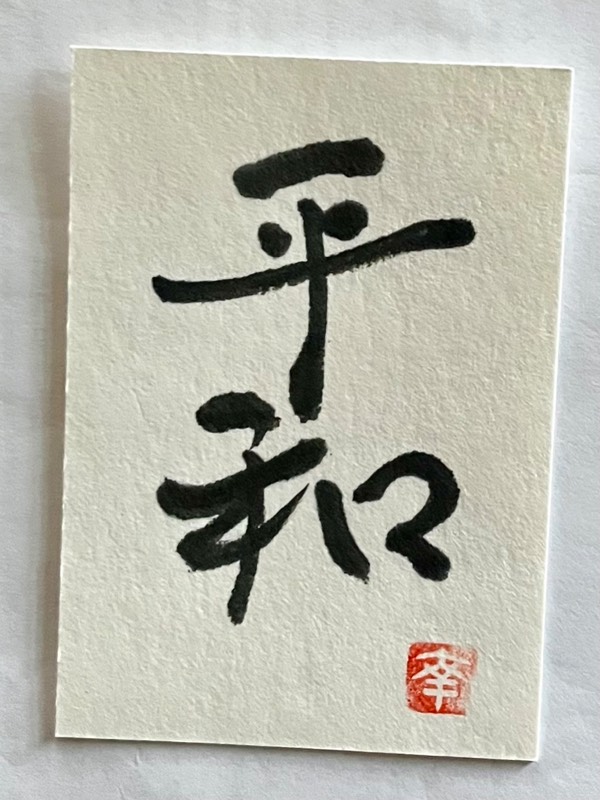 平
和
幸